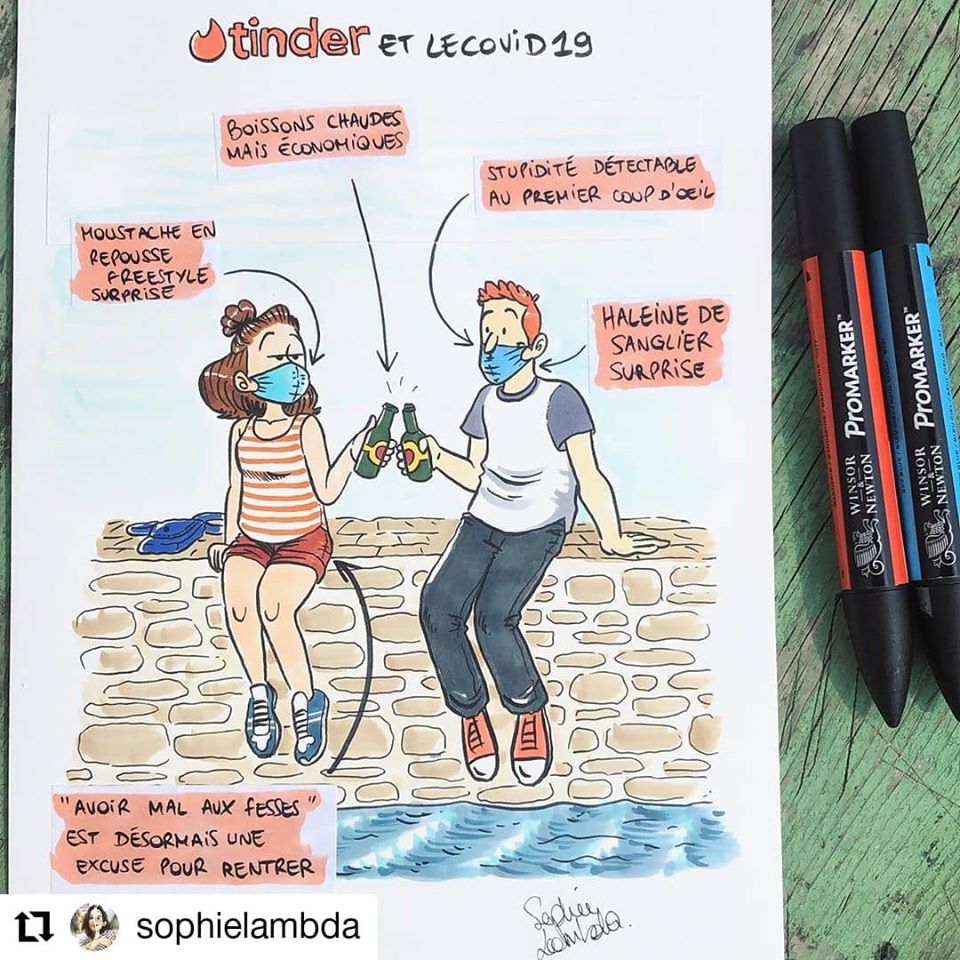 tinder ET LE COVID 19
BOISSONS CHAUDES
MAIS ÉCONOMIQUES
STUPIDITÉ DÉTECTABLE
AU PREMIER COUP D'OEIL
MOUSTACHE EN
REPOUSSE
FREESTYLE
SURPRISE
HALEINE DE
SANGLIER
SURPRISE
"AVOIR MAL AUX FESSES"
EST DÉSORMAIS UNE
EXCUSE POUR RENTRER
Sophie
Lambda.
WINSOR & NEWTON PROMARKER™
WINSOR & NEWTON PROMARKER™
sophielambda